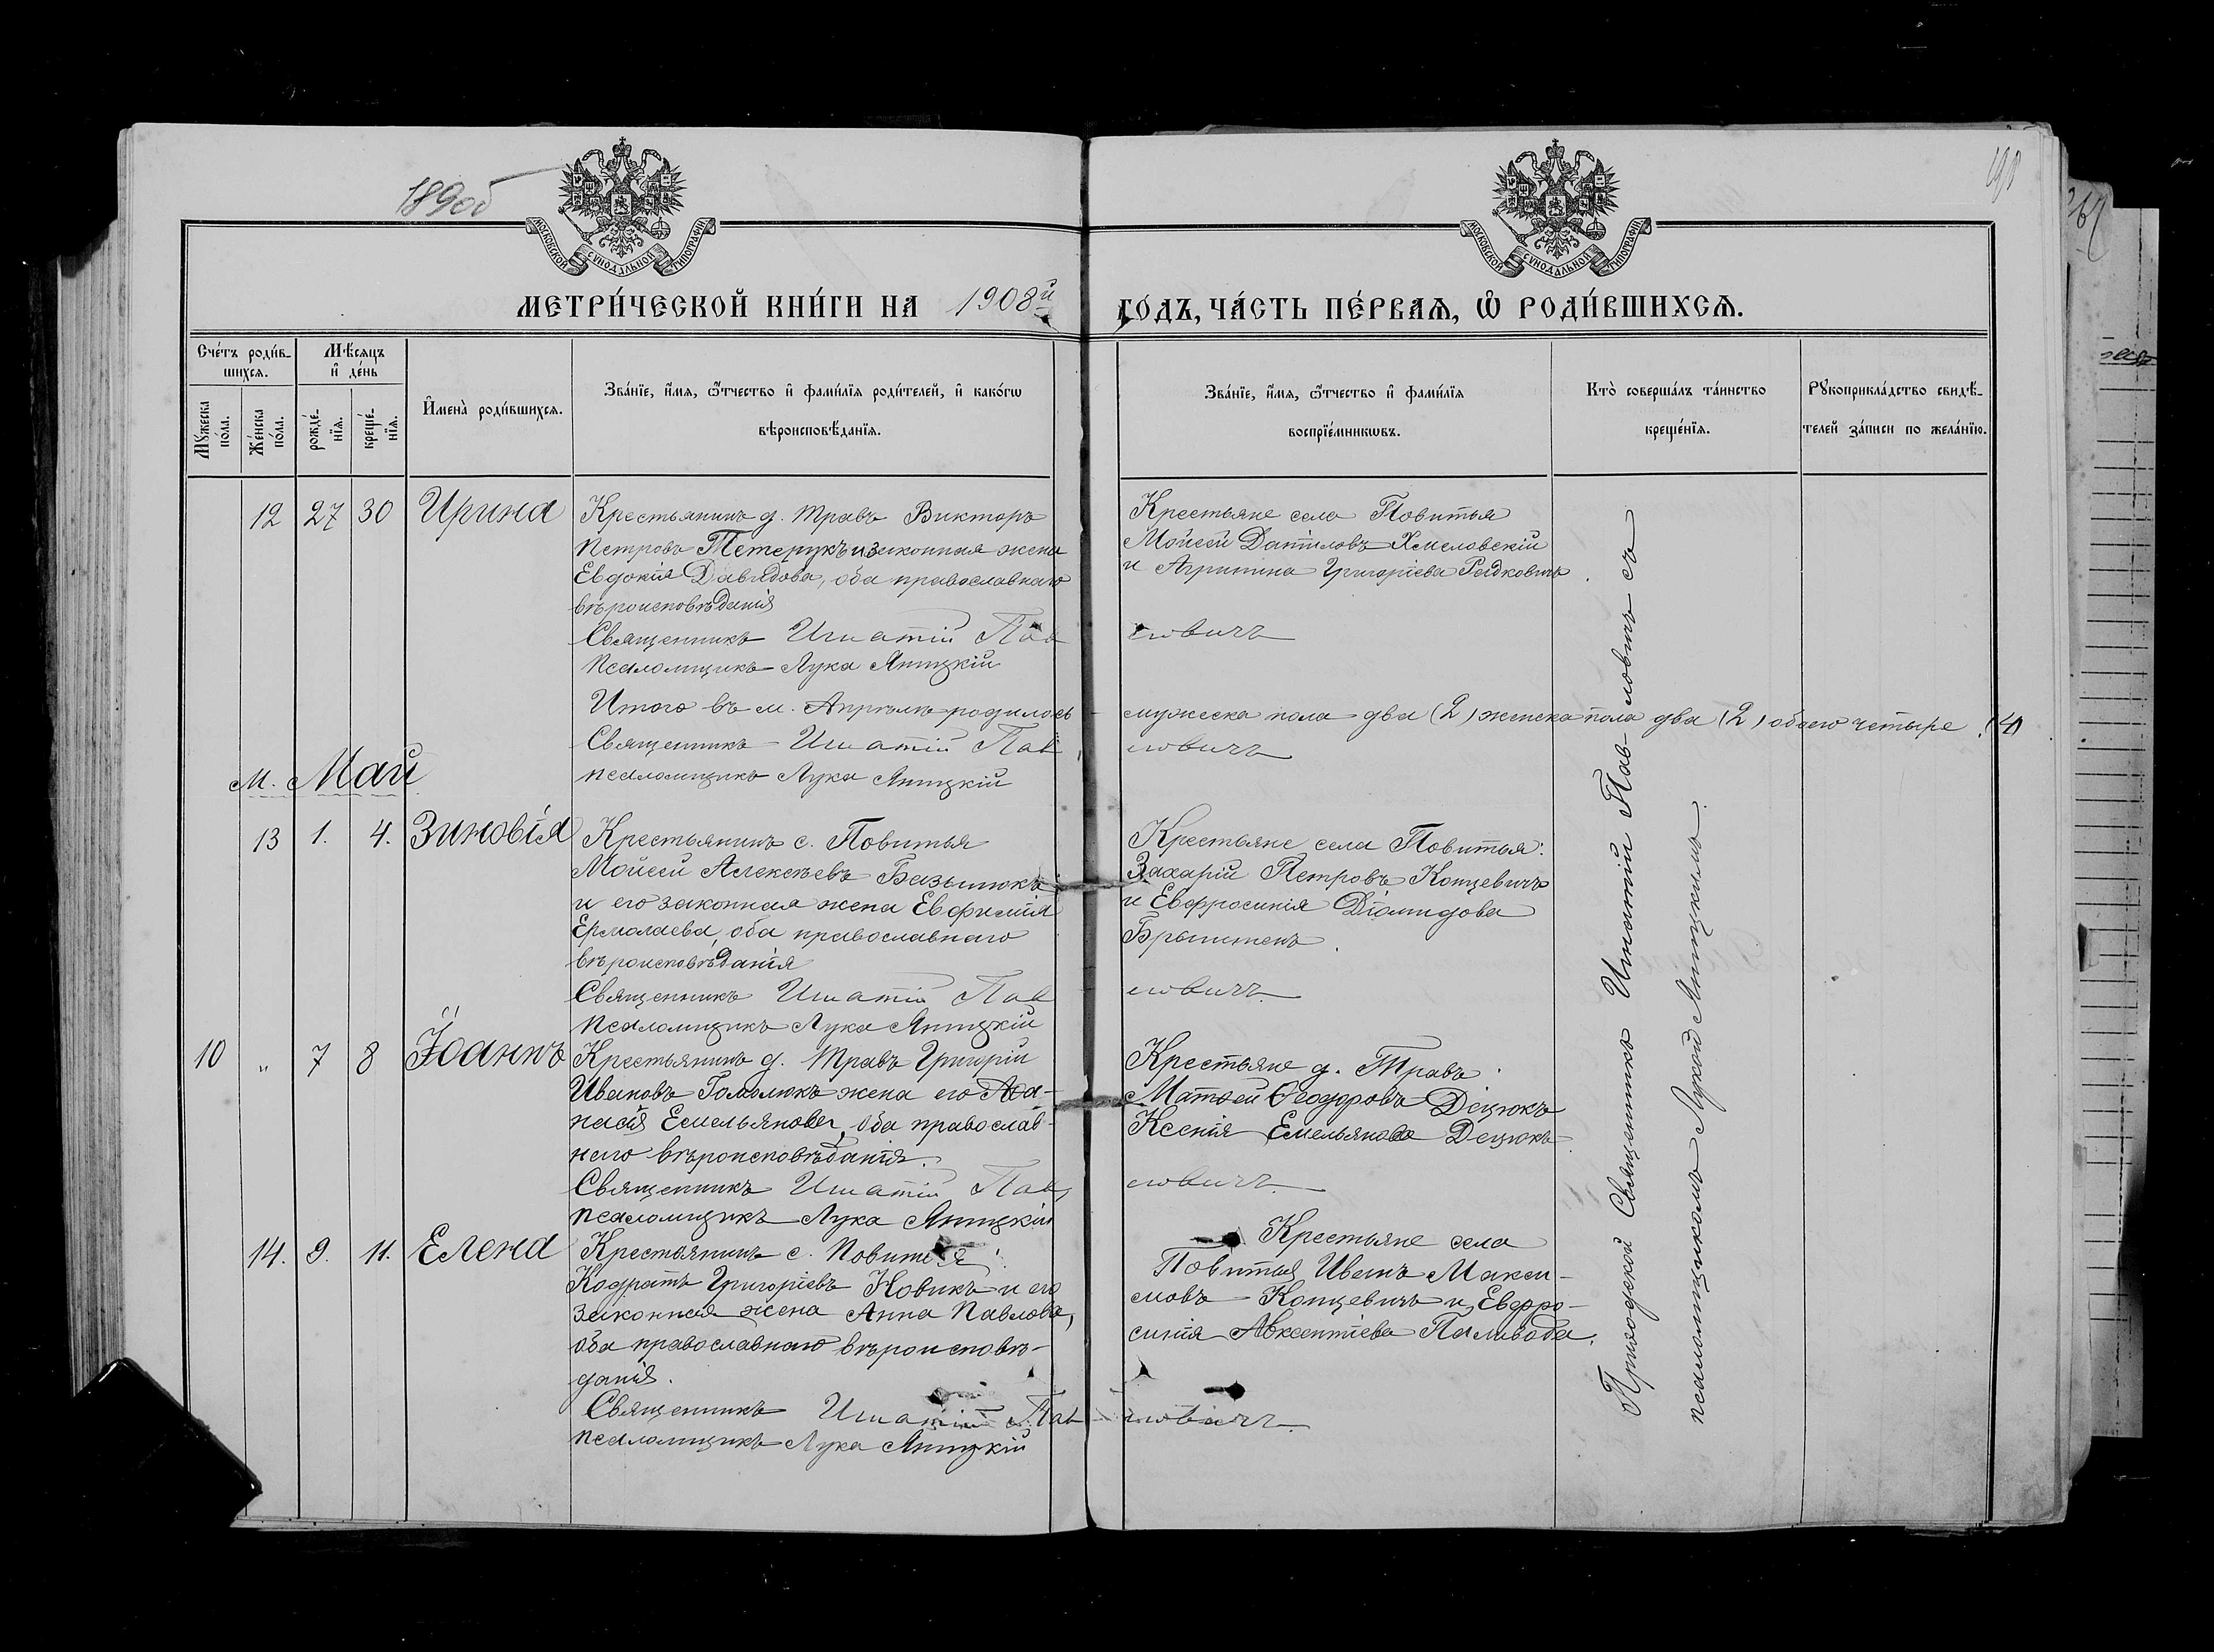 189об
МОСКОВСКОЙ СУНОДАЛЬНОЙ ТИПОГРАФІИ
МОСКОВСКОЙ СУНОДАЛЬНОЙ ТИПОГРАФІИ
МЕТРИ́ЧЕСКОЙ КНИ́ГИ НА 1908й ГО́ДЪ, ЧА́СТЬ ПЕ́РВАѦ, Ѡ҆ РОДИ́ВШИХСѦ.
Сче́тъ роди́в-
шихсѧ.
Мѣ́сѧцъ
и҆ де́нь
Мꙋ́жеска
по́ла.
Же́нска
по́ла.
рожде́-
нїѧ.
креще́-
нїѧ.
И҆мена̀ роди́вшихсѧ.
Зва́нїе, и҆́мѧ, ѻ҆́тчество и҆ фами́лїѧ роди́телей, и҆ како́гѡ
вѣроисповѣ́данїѧ.
Зва́нїе, и҆́мѧ, ѻ҆́тчество и҆ фами́лїѧ
воспрїе́мникѡвъ.
Кто̀ соверша́лъ та́инство
креще́нїѧ.
Рꙋкоприкла́дство свидѣ́-
телей за́писи по жела́нїю.
12 27 30 Ирина Крестьянинъ д. Травъ Викторъ
Петровъ Тетерукъ и законная жена
Евдокія Давидова, оба православнаго
вѣроисповѣданія
Священникъ Игнатій Пав
Псаломщикъ Лука Яницкій
Крестьяне села Повитья
Мойсей Даніиловъ Хмелевскій
и Агрипина Григоріева Радковичъ.
ловичъ
Итого въ м. Апрѣлѣ родилось мужеска пола два (2) женска пола два (2) обоего четыре (4)
Священникъ Игнатій Павловичъ
псаломщикъ Лука Яницкій
М. Май
13 1. 4. Зиновія Крестьянинъ с. Повитья
Мойсей Алексѣевъ Базылюкъ
и его законная жена Евфимія
Ермолаева, оба православнаго
вѣроисповѣданія
Священникъ Игнатій Пав
Псаломщикъ Лука Яницкій
Крестьяне села Повитья:
Захарій Петровъ Концевичъ
и Евфросинія Діомидова
ловичъ.
10 „ 7 8 Іоаннъ Крестьянинъ д. Травъ Григорій
Ивановъ жена его Аѳа-
насія Емельянова, оба православ-
наго вѣроисповѣданія.
Священникъ Игнатій Пав
псаломщикъ Лука Яницкій
Крестьяне д. Травъ
Матѳей Ѳеодоровъ Децюкъ
Ксенія Емельянова Децюкъ
ловичъ.
14. 9. 11. Елена Крестьянинъ с. Повитья:
Кодратъ Григоріевъ Новикъ и его
законная жена Анна Павлова,
оба православнаго вѣроисповѣ-
данія.
Священникъ Игнатій Пав
псаломщикъ Лука Яницкій
Крестьяне села
Повитья Иванъ Макси-
мовъ Концевичъ и Евфро-
синія Авксентіева Паливода.
ловичъ.
Приходской Священникъ Игнатій Пав-ловичъ съ
псаломщикомъ Лукой Яницкимъ.